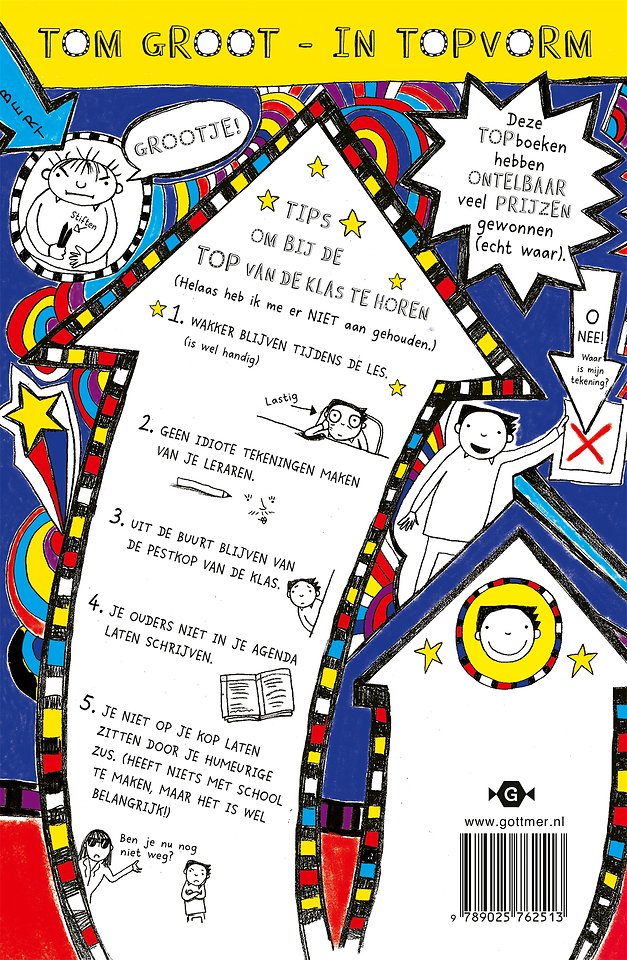 TOM GROOT - IN TOPVORM
BERT
GROOTJE!
Stiften
Deze
TOPboeken
hebben
ONTELBAAR
veel PRIJZEN
gewonnen
(echt waar).
TIPS
OM BIJ DE
TOP VAN DE KLAS TE HOREN
(Helaas heb ik me er NIET aan gehouden.)
1. WAKKER BLIJVEN TIJDENS DE LES.
(is wel handig)
Lastig
O
NEE!
Waar
is mijn
tekening?
2. GEEN IDIOTE TEKENINGEN MAKEN
VAN JE LERAREN.
3. UIT DE BUURT BLIJVEN VAN
DE PESTKOP VAN DE KLAS.
4. JE OUDERS NIET IN JE AGENDA
LATEN SCHRIJVEN.
5. JE NIET OP JE KOP LATEN
ZITTEN DOOR JE HUMEURIGE
ZUS. (HEEFT NIETS MET SCHOOL
TE MAKEN, MAAR HET IS WEL
BELANGRIJK!)
Ben je nu nog
niet weg?
G
www.gottmer.nl
9 789025 762513